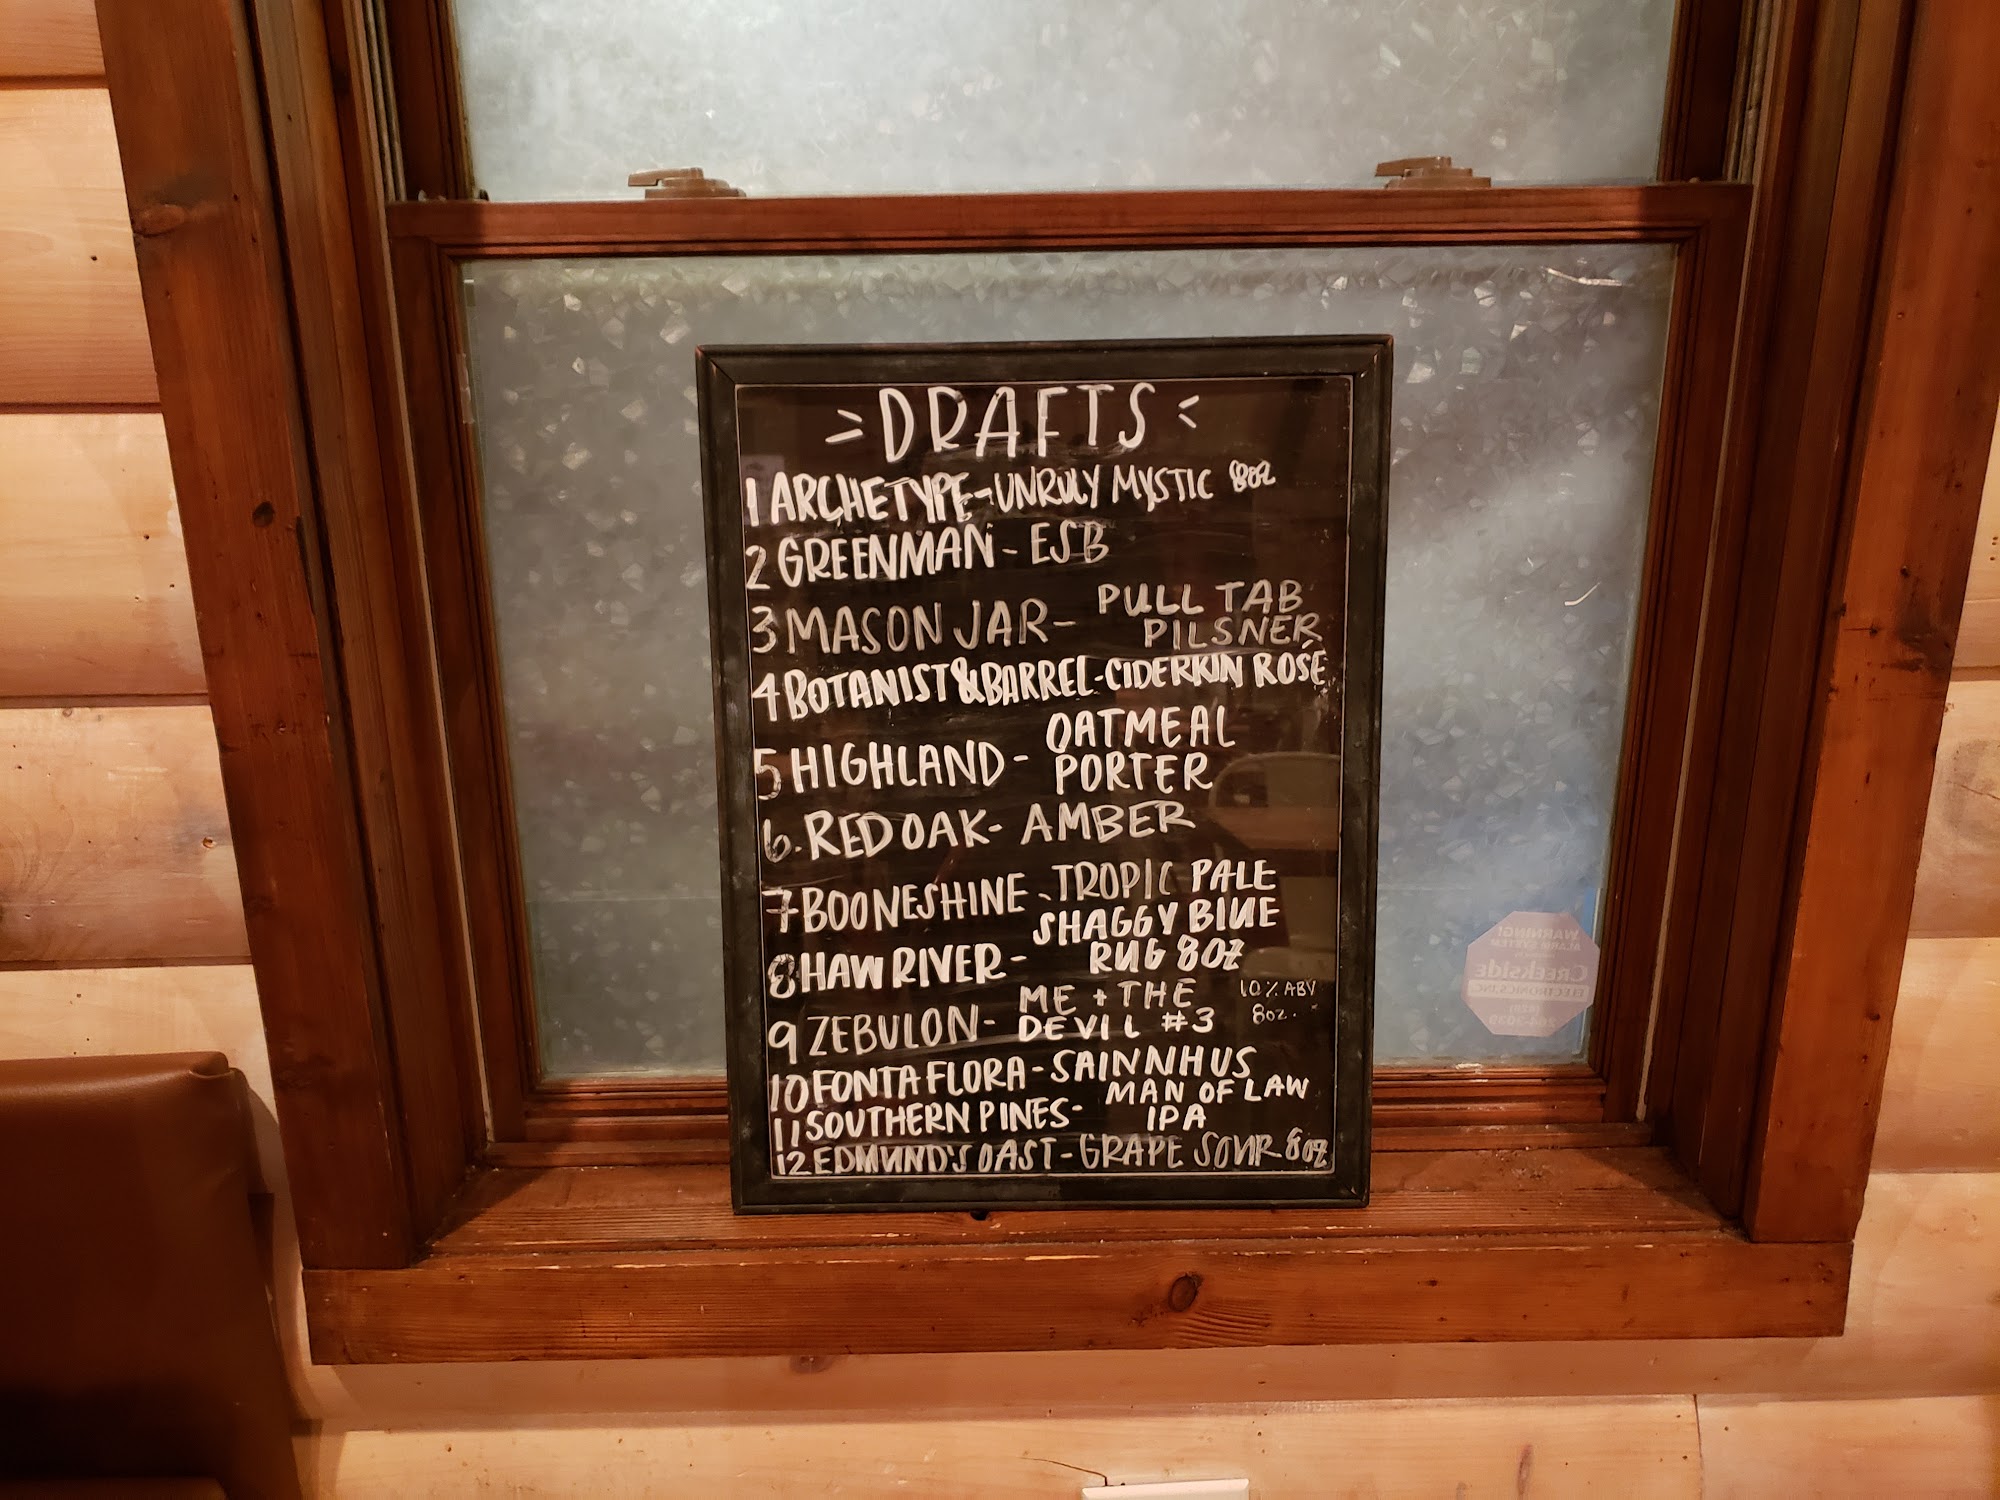 =DRAFTS=
1 ARCHETYPE-UNRULY MYSTIC 8OZ
2 GREENMAN - ESB
3 MASON JAR- PULL TAB
PILSNER
4 BOTANIST & BARREL-CIDERKIN ROSÉ
5 HIGHLAND- OATMEAL
PORTER
6. RED OAK- AMBER
7 BOONESHINE - TROPIC PALE
8 HAW RIVER- SHAGGY BLUE
RUG 8OZ
9 ZEBULON- ME + THE
DEVIL #3
10% ABV
8OZ.
10 FONTA FLORA-SAINNHUS
11 SOUTHERN PINES- MAN OF LAW
IPA
12 EDMUND'S OAST-GRAPE SOUR 8OZ
WARNING!
ALARM SYSTEM
Creekside
ELECTRONICS, INC.